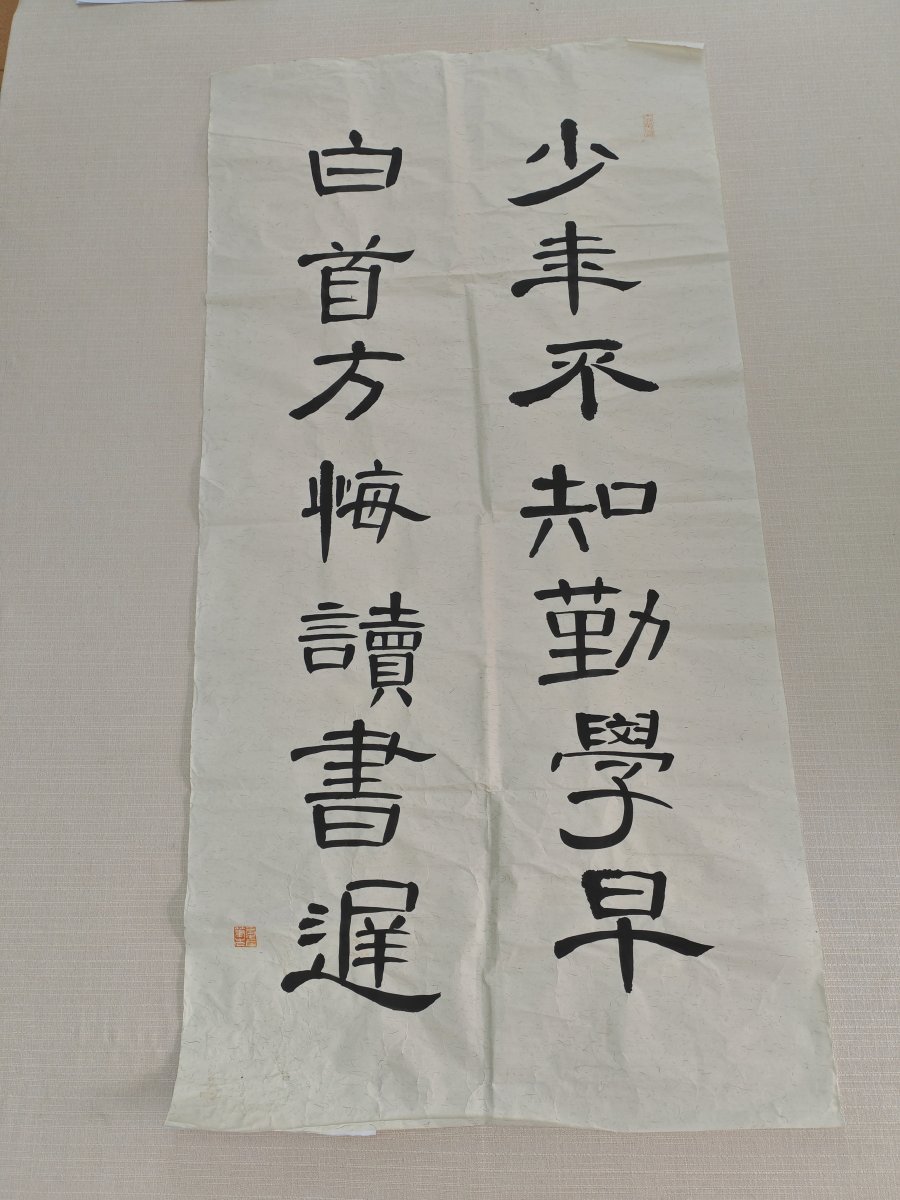 少年不知勤學早
白首方悔讀書遲